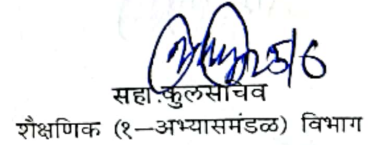 25/6
सहा.कुलसचिव
शैक्षणिक (१–अभ्यासमंडळ) विभाग